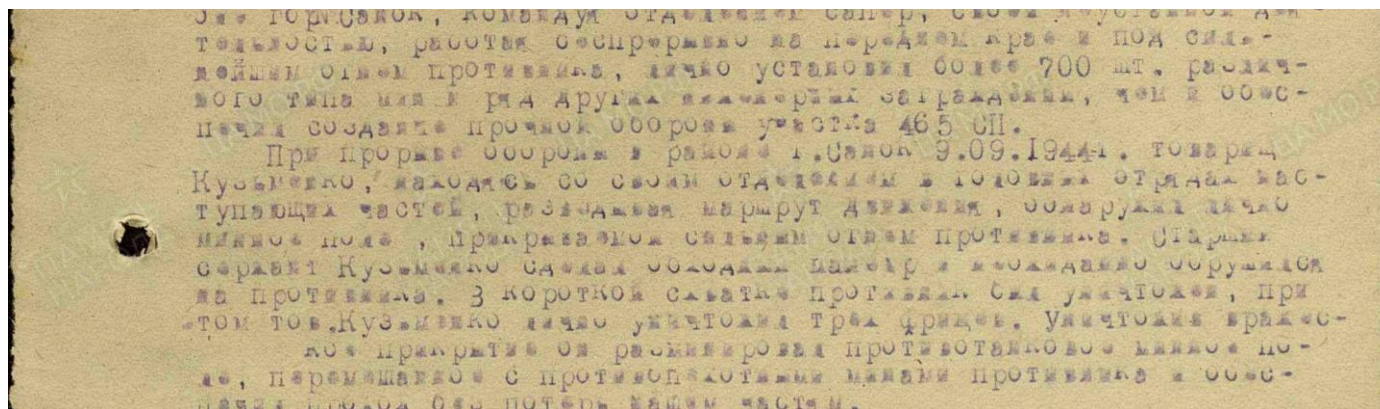 гор.Санок, командуя отделением сапер, своей неустанной дея-
тельностью, работая беспрерывно на переднем крае и под силь-
нейшим огнем противника, лично установил более 700 шт. различ-
ного типа мин и ряд других инженерных заграждений, чем и обес-
печил создание прочной обороны участка 465 СП.
При прорыве обороны в районе г.Санок 9.09.1944г. товарищ
Кузьменко, находясь со своим отделением в головных отрядах нас-
тупающих частей, разведывая маршрут движения, обнаружил лично
минное поле , прикрываемое сильным огнем противника. Старший
сержант Кузьменко сделал обходный маневр и неожиданно обрушился
на противника. В короткой схватке противник был уничтожен, при
этом тов.Кузьменко лично уничтожил трех фрицев. Уничтожив вражес-
кое прикрытие он разминировал противотанковое минное по-
ле, перемешанное с противопехотными минами противника и обес-
печил проход без потерь нашим частям.